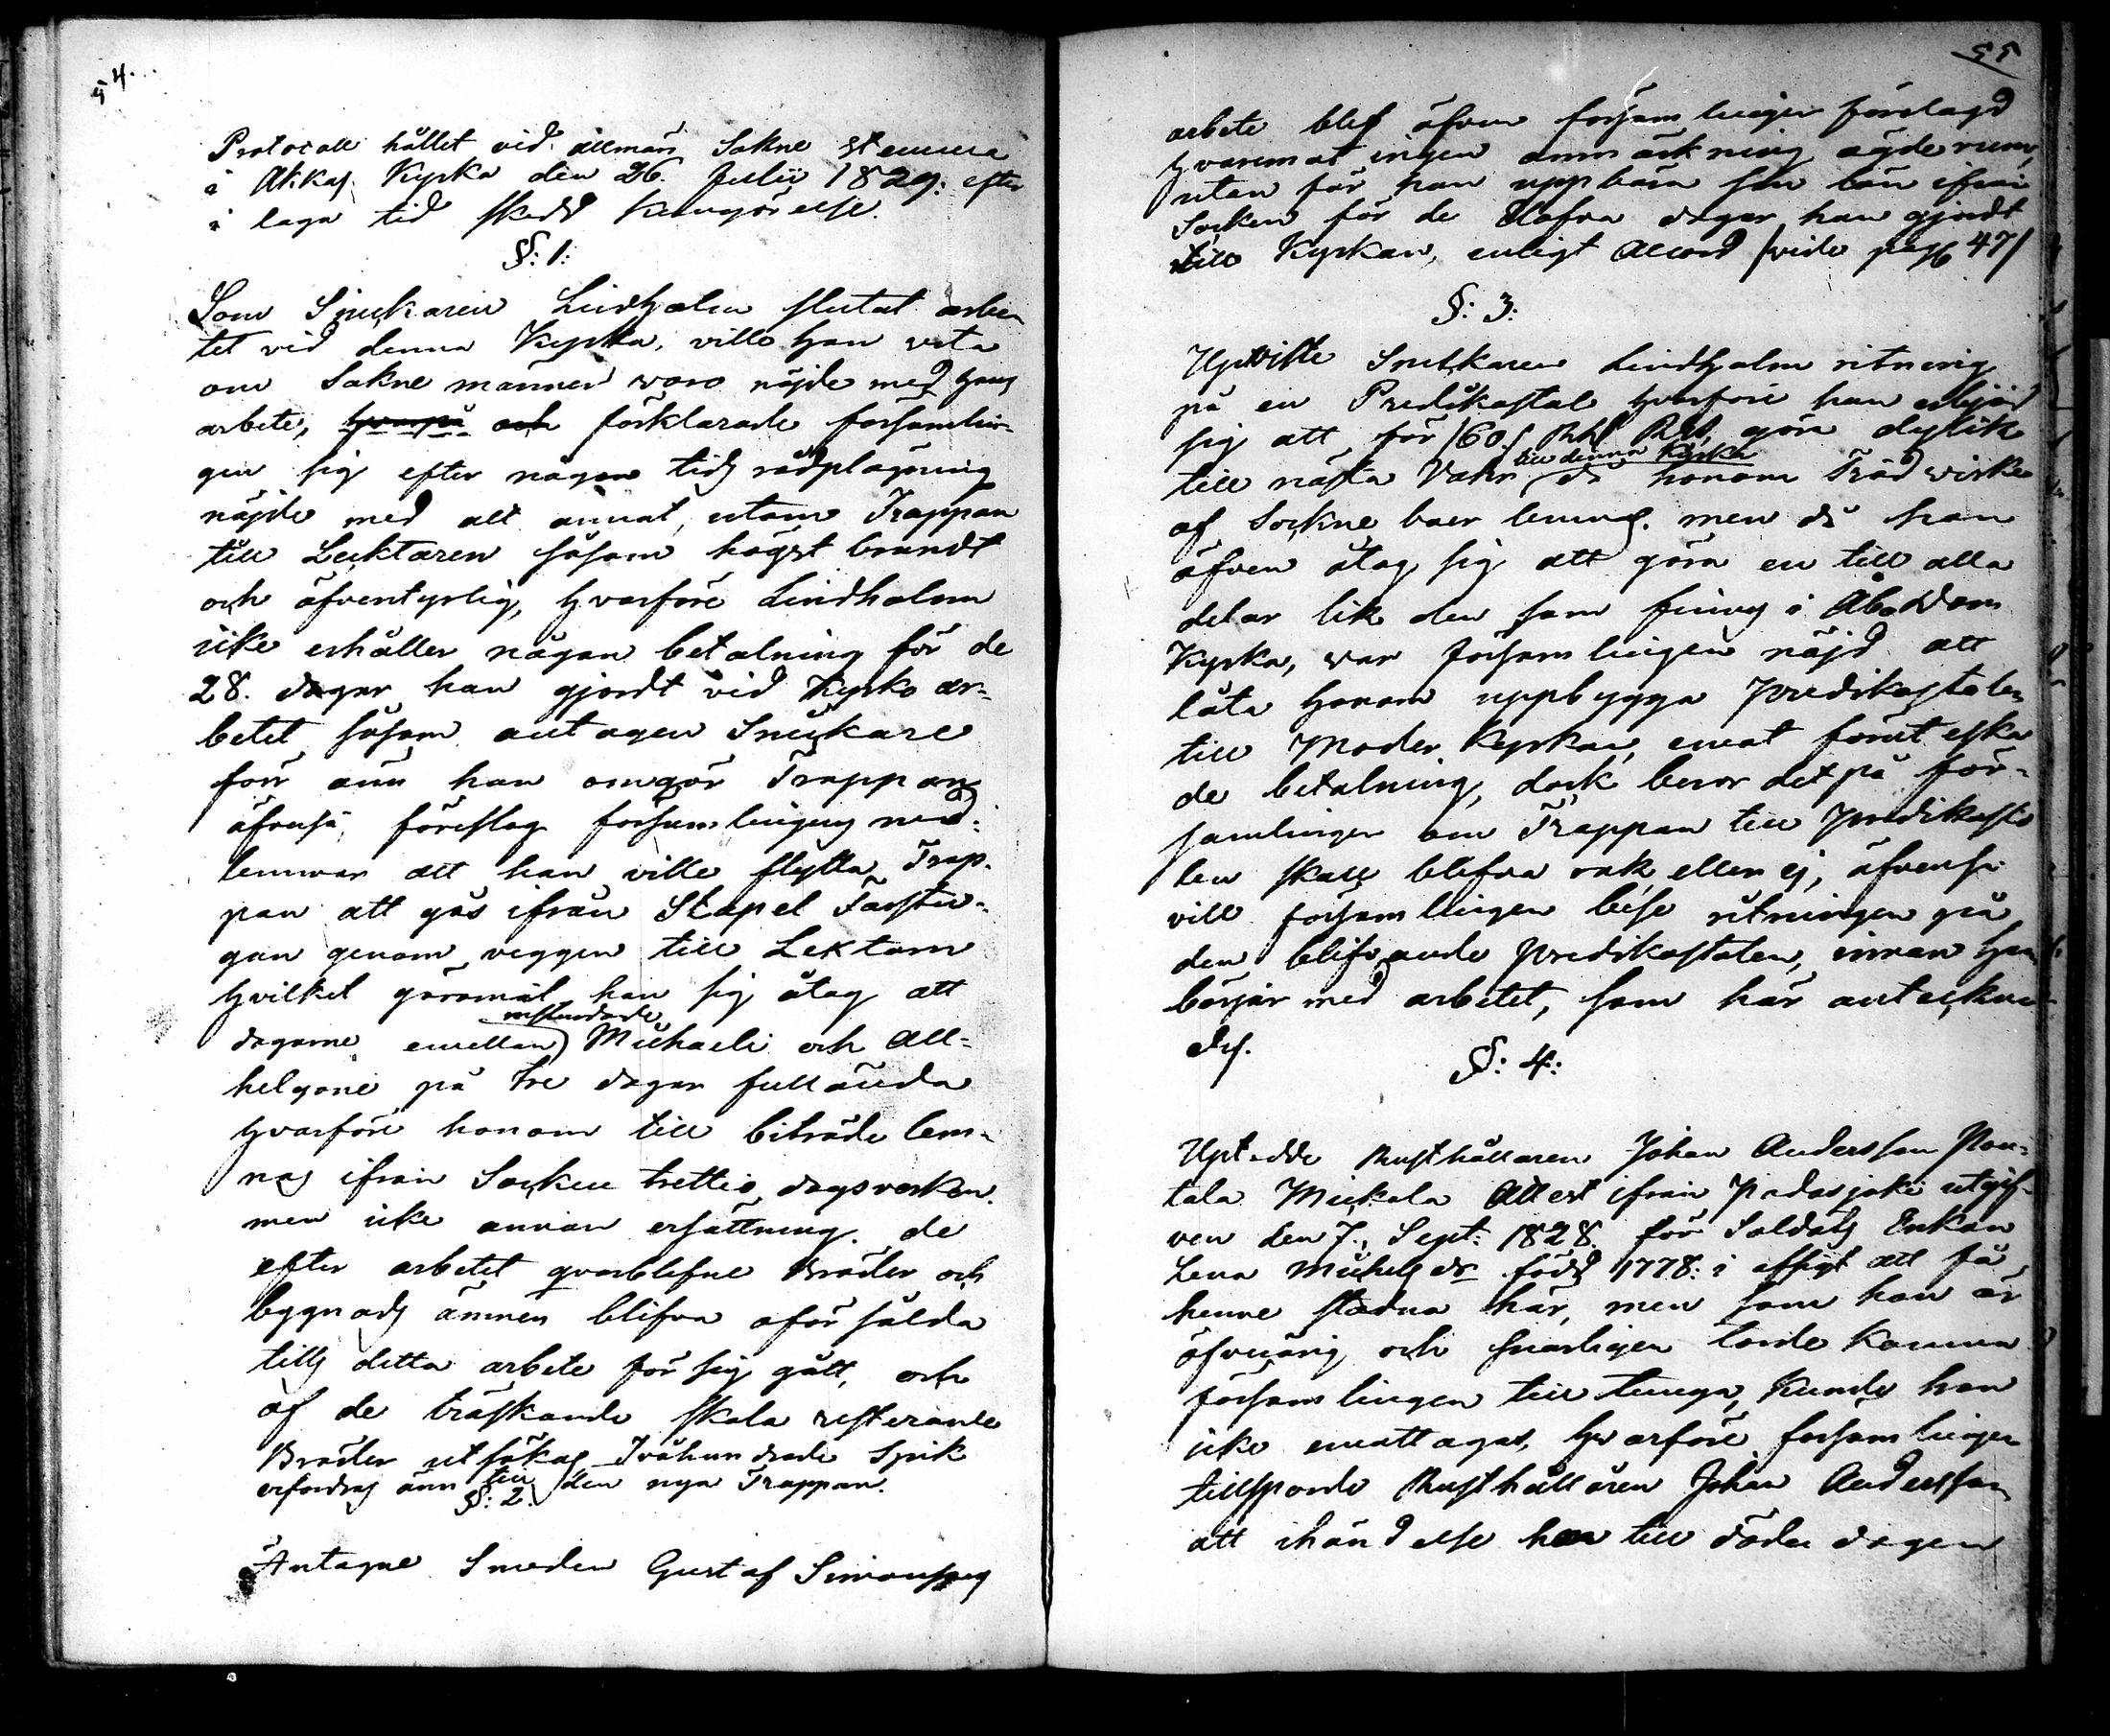 54.
Protocoll hållet vid allmän Sokne stemma
i Akkas Kyrka den 26 Julii 1829: efter
i laga tid skedd kungörelse.
§: 1:
Som Snickaren Lindholm slutat arbe
tet vid denna Kyrka, ville han veta
om Sokne männen woro nöjde med hans
arbete, hvarpå och förklarade församlin-
gen sig efter någon tids rådplägning
nöjde med alt annat, utom Trappan
till Lecktaren såsom högst brandt
och äfventyrlig, hvarföre Lindholm
icke erhåller någon betalning för de
28. dagar han gjordt vid Kyrko ar-
betet såsom antagen Snickare
förr änn han omgör Trappan,
äfvenså föreslog församlingens med-
lemmar att han ville flytta Trap-
pan att gås ifrån Stapel Farstu-
gan genom veggen till Lektarn
hvilket göromål han sig åtog att
dagarne emellan instundande Michaeli och All-
helgone på tre dagar fullända
hvarföre honom till biträde lem-
nas ifrån Socken trettio dagsverken.
men icke annan ersättning. de
efter arbetet qvarblefne Bräder och
bygnads ämnen blifva oförsålda
tills detta arbete för sig gått, och
af de träskande skola resterande
Bräder utsökas Tvåhundrade Spik
erfordras änn till den nya Trappan.
§: 2.
Antagne Smeden Gustaf Simonssons
55
arbete blef äfven församlingen förelagd
hvaremot ingen anmärkning ägde rum,
utan får han uppbära sin lön ifrån
Socken för de Elofva dagar han gjordt
till Kyrkan, enligt Accord /vide pag 47/
§: 3:
Upviste Snickaren Lindholm ritning
på en Predikostol hvarföre han erbjöd
sig att för 160 Rbl göra dylik
till nästa Vahr till denna Kyrka då honom Träd wirke
af Sockne boer lemnas. men då han
äfven åtog sig att göra en till alla
delar lik den som finnes i
Kyrka, war församlingen nöjd att
låta honom uppbygga Predikostolen
till Moder Kyrkan, emot förut
de betalning, dock beror det på för-
samlingen om Trappan till Predikosto
len skall blifva rak eller ej, äfvenså
vill församlingen bese ritningen på
den blifvande predikostolen, innan han
börjar med arbetet, som här anteckna
des.
§: 4:
Upt dde Rusthållaren Johan Andersson
tala Mickala Attest ifrån Padasjoki utgif-
ven den 7. Sept: 1828 för Soldats Enkan
Lena Michels dr född 1778: i afsigt att få
henne stadna här, men som hon är
öfveårig och snarligen torde komma
församlingen till tunga, kunde hon
icke emottagas, hvarföre församlingen
tillsporde Rusthållaren Johan Andersson
att ihändelse hon till döde dagen